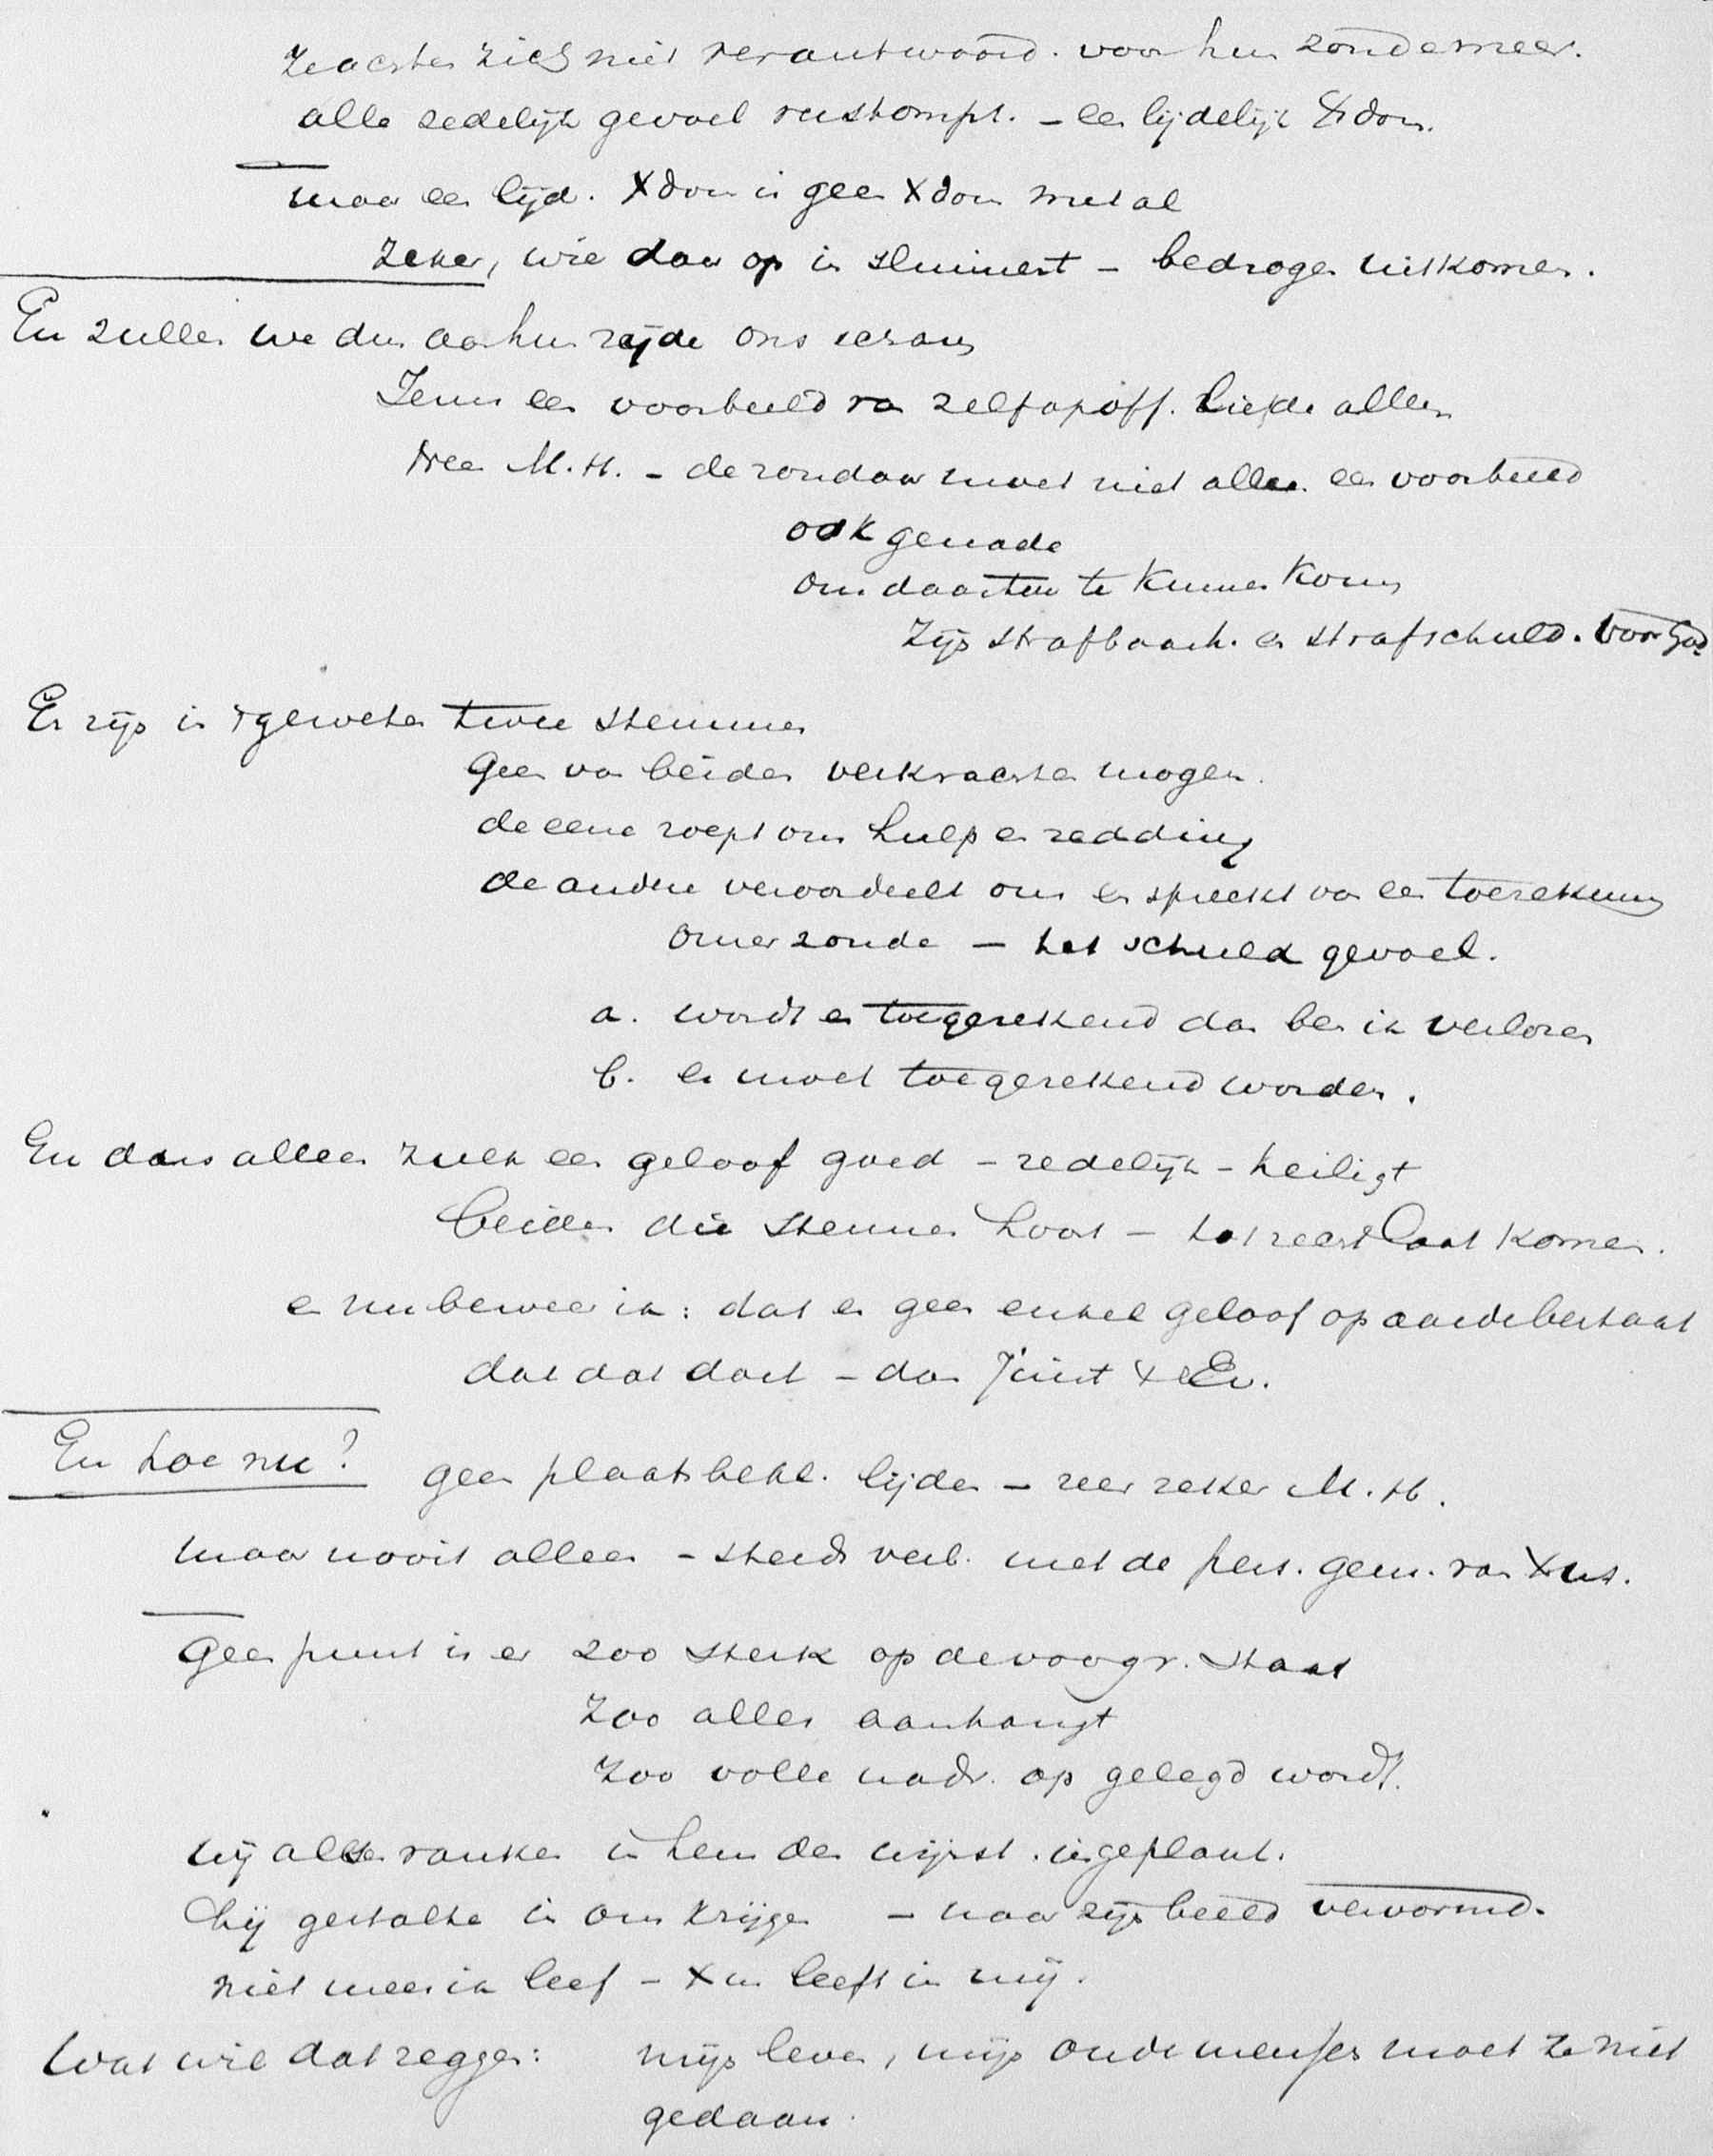 ze achten zich niet verantwoord. voor hun zonde meer.
alle zedelijk gevoel verstompt. – een lijdelijk Xdom.
maar een lijd. Xdom is geen Xdom met al
Zeker, wie daar op in sluimert – bedrogen uitkomen.
En zullen we dus aan hun zijde ons scharen
Jezus een voorbeeld van zelfopoff. liefde alleen
Nee M.H. – de zondaar moet niet alleen een voorbeeld
ook genade
om daartoe te kunnen komen
Zijn strafbaarh. en strafschuld. voor God
Er zijn in 't geweten twee stemmen
Geen van beiden verkrachten mogen.
de eene roept om hulp en redding
de andere veroordeelt ons en spreekt van een toerekening
onzer zonde – het schuld gevoel.
a. wordt er toegerekend dan ben ik verloren
b. er moet toegerekend worden.
En dans alleen zulk een geloof goed – redelijk – heiligt
beiden die stemmen hoort – tot recht laat komen.
en nu beweer ik: dat er geen enkel geloof op aarde bestaat
dat dat doet – dan juist X Ev.
En hoe nu?
geen plaatsbekl. lijden – zeer zeker M.H.
maar nooit alleen – steeds verb. met de pers. gem. van Xus.
Geen punt is er zoo sterk op de voorgr. staat
Zoo alles aanhangt
Zoo volle nadr. op gelegd wordt.
wij alle ranken in hem den wijnst. ingeplant.
hij gestalte in ons krijgen – naar zijn beeld vervormd.
niet meer ik leef – Xus leeft in mij.
Wat wil dat zeggen: mijn leven, mijn oude menschen moet te niet
gedaan.